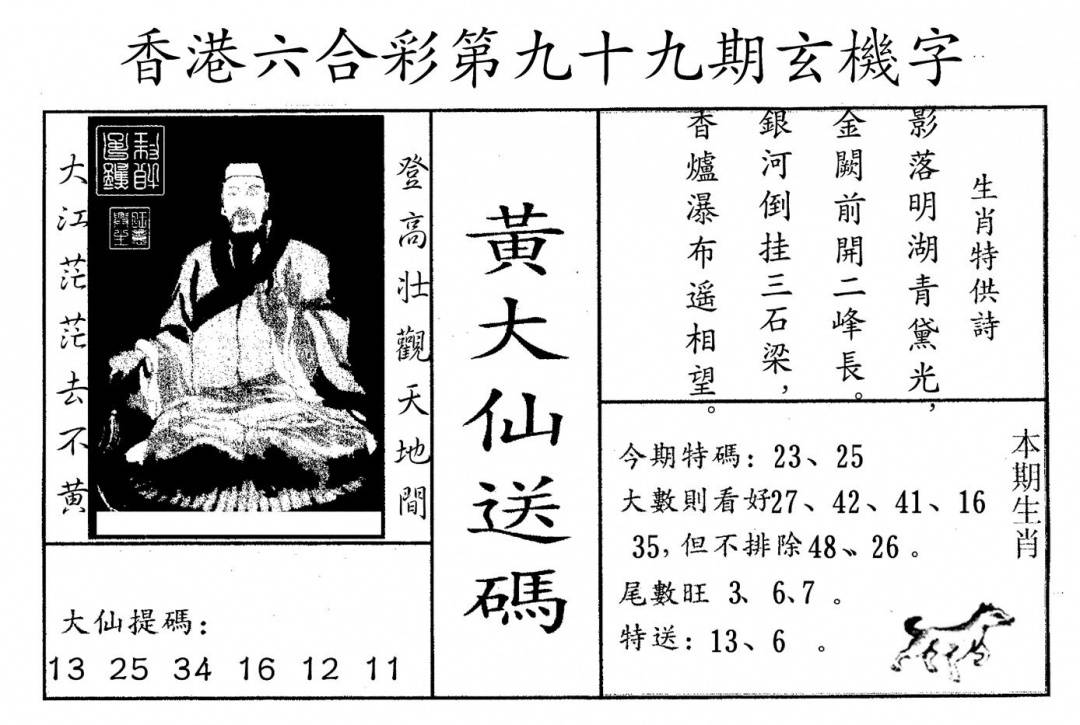 香港六合彩第九十九期玄機字
登高壯觀天地間
大江茫茫去不黃
大仙提碼：
13 25 34 16 12 11
黃大仙送碼
生肖特供詩
影落明湖青黛光，
金闕前開二峰長。
銀河倒挂三石梁，
香爐瀑布遥相望。
本期生肖
今期特碼：23、25
大數則看好27、42、41、16
35，但不排除48、26 。
尾數旺 3、6、7 。
特送：13、6 。